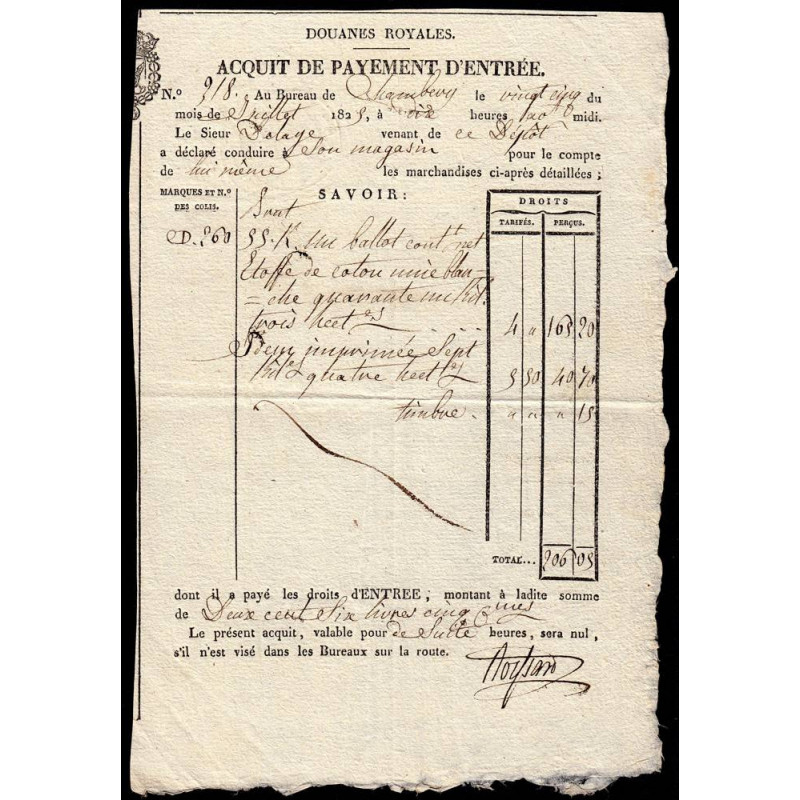 DOUANES ROYALES.
ACQUIT DE PAYEMENT D'ENTRÉE.
N.o 318. Au Bureau de Chambery le vingt cinq du
mois de Juillet 1825, à dix heures av midi.
Le Sieur Dolage venant de ce Dépôt
a déclaré conduire à Son magasin pour le compte
de lui même les marchandises ci-après détaillées ;
MARQUES ET N.os DES COLIS.
SAVOIR :
DROITS
TARIFÉS. PERÇUS.
Brut
D. 260 55 K. un ballot cont.t net
Etoffe de coton unie blan-
=che quarante un kil.
trois hect.es 4 " 165 20
Idem imprimée Sept
kil.es quatre hect.es 5 50 40 70
timbre . " " " 15
TOTAL... 206 05
dont il a payé les droits d'ENTREE ; montant à ladite somme
de Deux cent Six livres cinq c.mes
Le présent acquit, valable pour de Suite heures, sera nul,
s'il n'est visé dans les Bureaux sur la route.